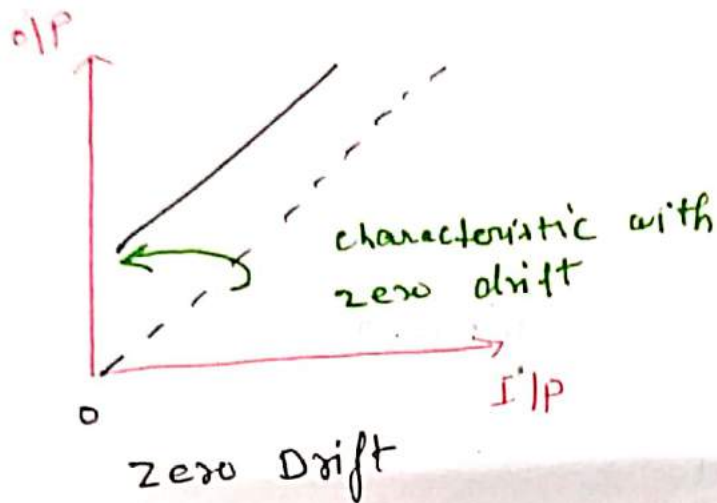 O/P
characteristic with
zero drift
I/P
0
Zero Drift